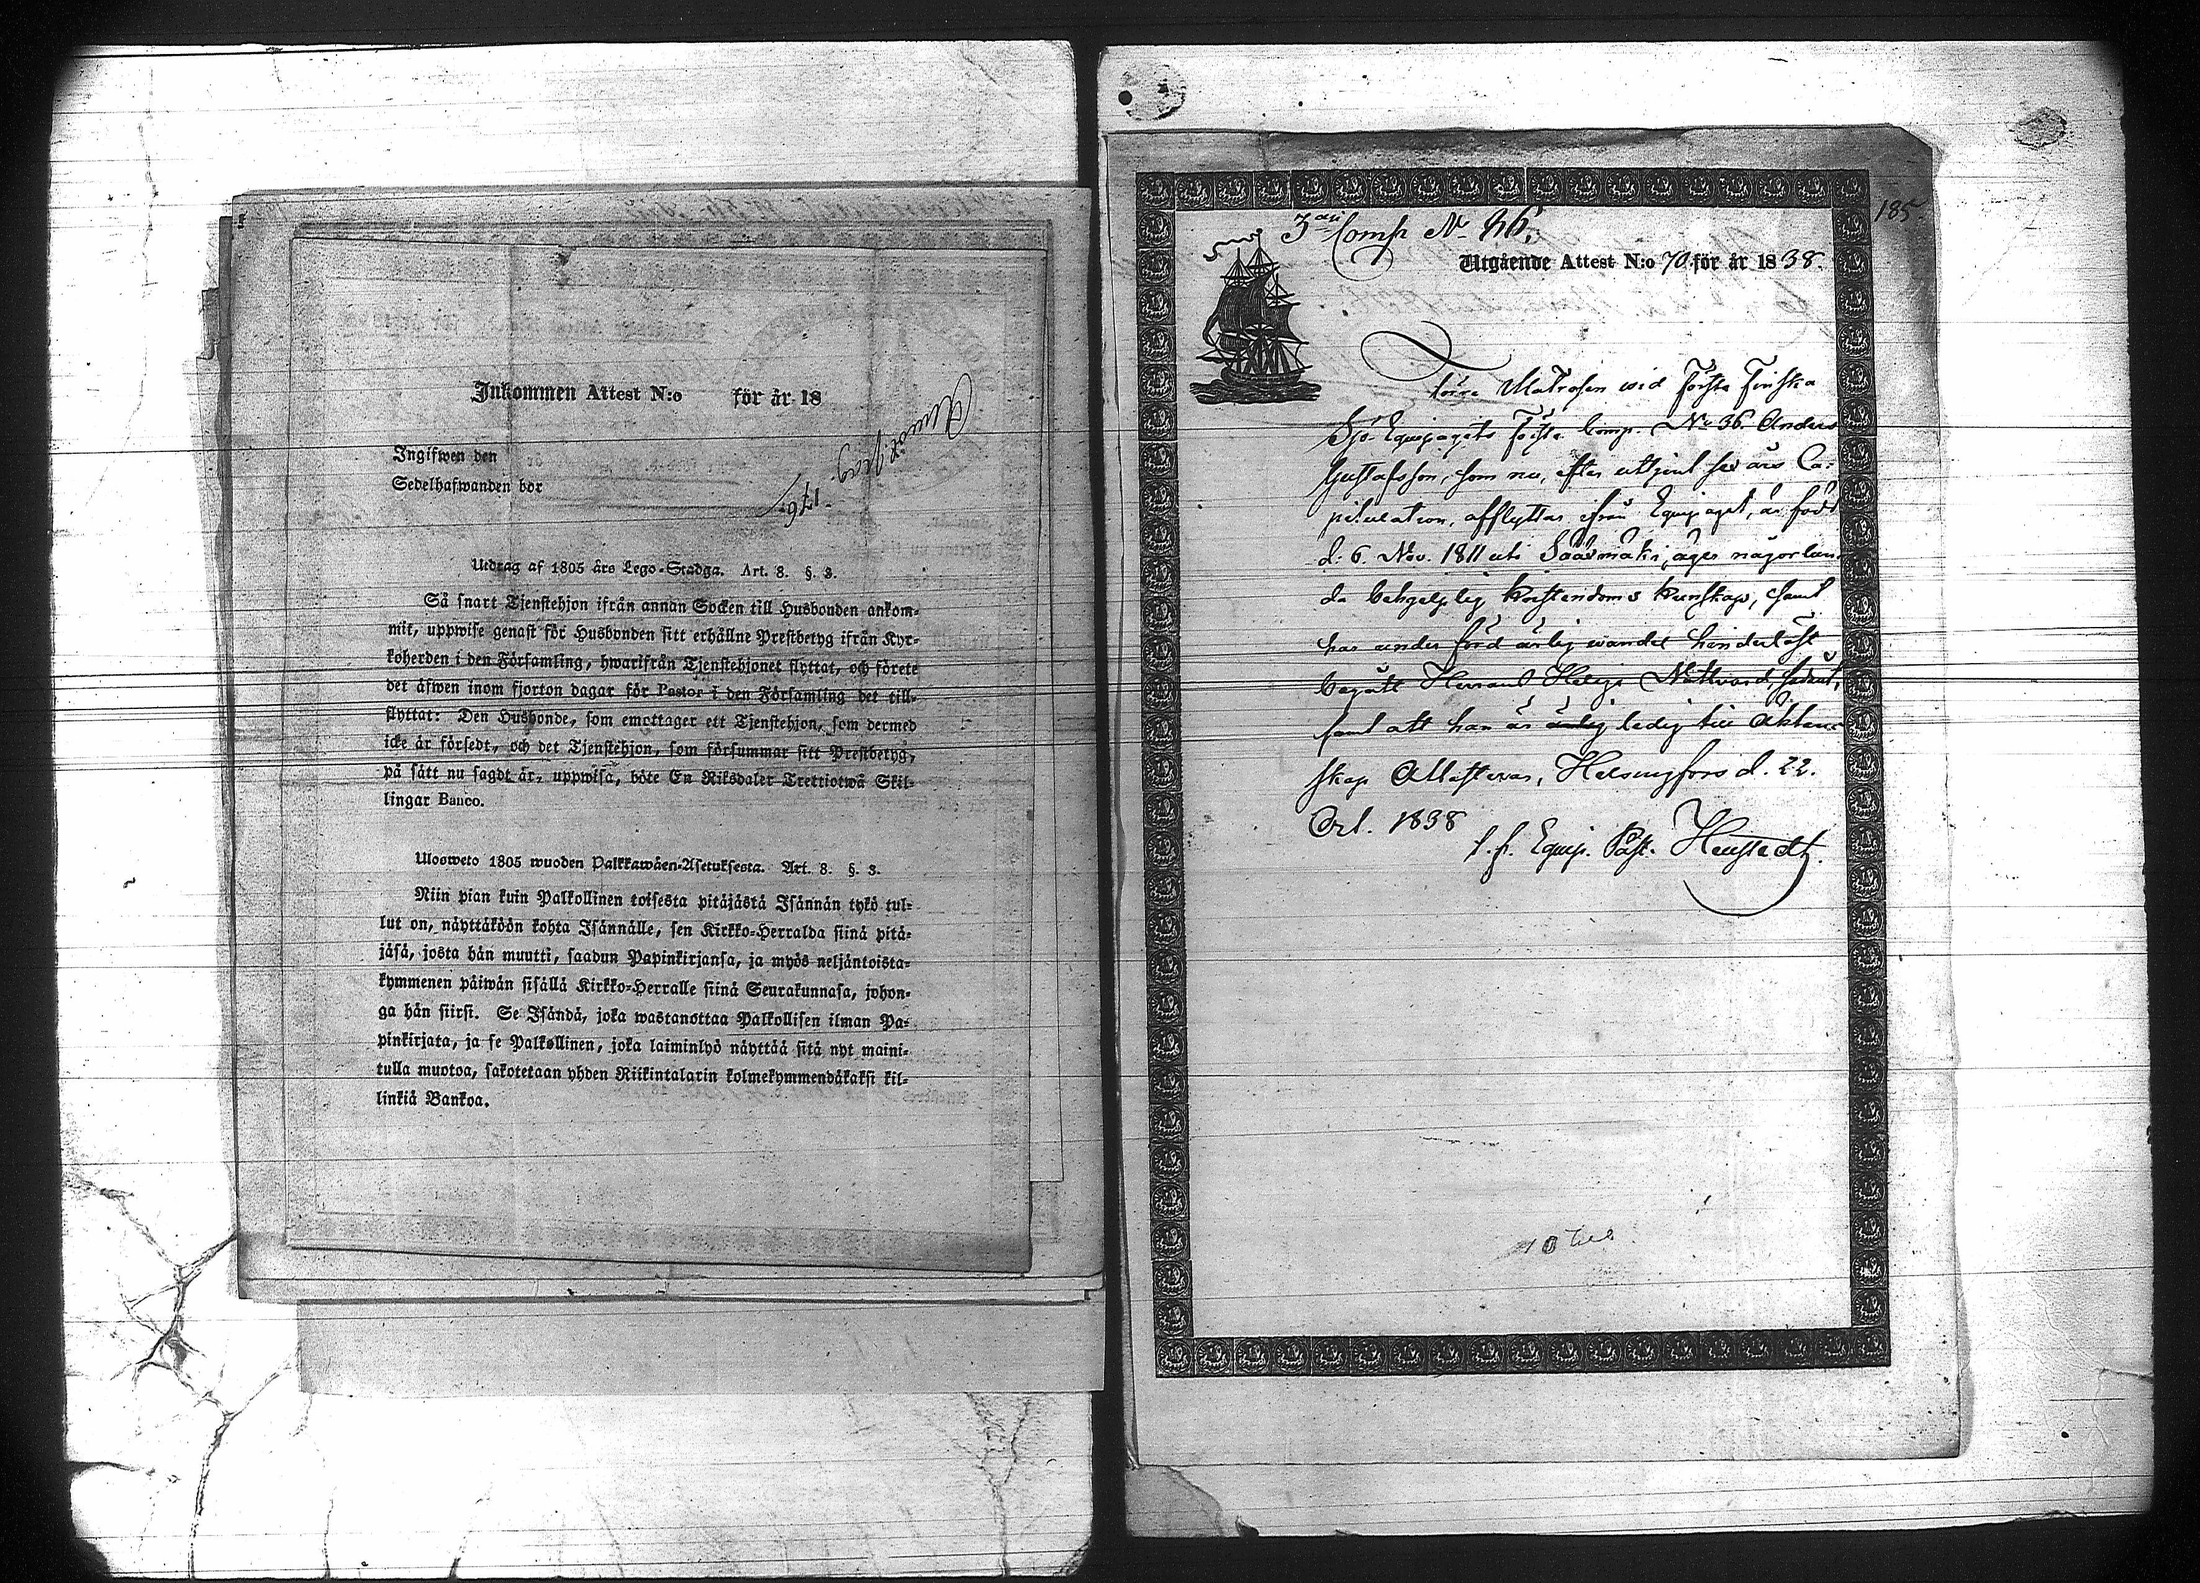 Inkommen Attest N:o för år 18
Ingifwen den
Sedelhafwanden bor
176.
Utdrag af 1805 års Lego-Stadga. Art. 8. §. 3.
Så snart Tjenstehjon ifrån annan Socken till Husbonden ankom-
mit, uppwise genast för Husbonden sitt erhållne Prestbetyg ifrån Kyr-
koherden i den Församling, hwarifrån Tjenstehjonet flyttat, och förete
det äfwen inom fjorton dagar för Pastor i den Församling det till-
flyttat: Den Husbonde, som emottager ett Tjenstehjon, som dermed
icke är försedt, och det Tjenstehjon, som försummar sitt Prestbetyg,
på sätt nu sagdt är, uppwisa, böte En Riksdaler Trettiotwå Skil-
lingar Banco.
Ulosweto 1805 wuoden Palkkawäen-Asetuksesta. Art. 8. §. 3.
Niin pian kuin Palkollinen toisesta pitäjästä Isännän tykö tul-
lut on, näyttäköön kohta Isännälle, sen Kirkko-Herralda siinä pitä-
jäsä, josta hän muutti, saadun Papinkirjansa, ja myös neljäntoista-
kymmenen päiwän sisällä Kirkko-Herralle siinä Seurakunnasa, johon-
ga hän siirsi. Se Isändä, joka wastanottaa Palkollisen ilman Pa-
pinkirjata, ja se Palkollinen, joka laiminlyö näyttää sitä nyt maini-
tulla muotoa, sakotetaan yhden Riikintalarin kolmekymmendäkaksi kil-
linkiä Bankoa.
185.
3 Comp No 96.
Utgående Attest N:o 70 för år 1838.
Förre Matrosen wid Första Finska
Sjö-Equipagets Första Comp. No 36 Anders
Gustafsson, som nu, efter uttjent sex års Ca-
pitulation, afflyttar ifrån Equipaget, är född
d: 6. Nov. 1811 uti Sääxmäki, äger någorlun-
da behjelplig kristendoms kunskap, samt
har under förd ärlig wandel hinderlöst
begått Herrans Heliga Nattvard,
samt att han är ärlig ledig till äkten-
skap Attesteras, Helsingfors d. 22.
Oct. 1838
t. f. Equip. Past.
10